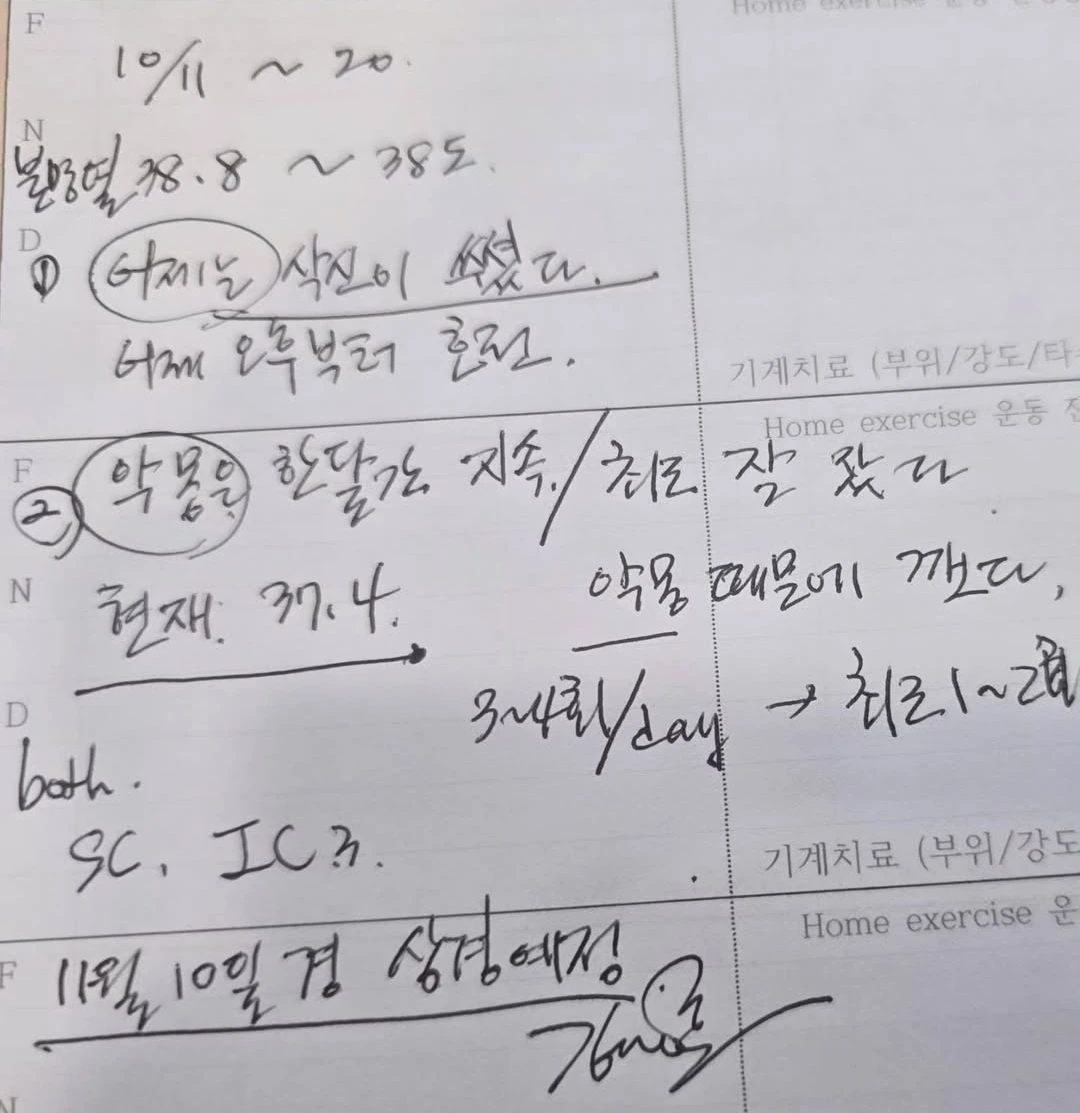 Home exercise 운동
F
10/11 ~ 20.
N
불명열 38.8 ~ 38도.
D
① 어제는 삭신이 쑤셨다.
어제 오후부터 호전.
기계치료 (부위/강도/타
Home exercise 운동 전
F
② 악몽은 한달간 지속. / 최근 잘 잤다.
N
현재. 37.4.
악몽 때문에 깬다,
3~4회/day → 최근 1~2
D
both.
SC, IC 系.
기계치료 (부위/강도
Home exercise 운
F
11월 10일 경 상경예정
N